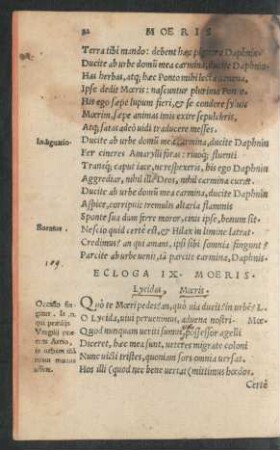 82 MŒRIS
Terra tibi mando: debent hæc pignora Daphnin.
Ducite ab urbe domũ mea carmina, ducite Daphnin.
Has herbas, atq; hæc Ponto mihi lecta uenena,
Ipse dedit Mœris: nascuntur plurima Ponto.
His ego sæpe lupum fieri, & se condere syluis
Mœrim, sæpe animas imis exire sepulchris,
Atq; satas aliò uidi traducere messes.
Ducite ab urbe domũ mea carmina, ducite Daphnin
Fer cineres Amarylli foras: riuoq; fluenti
Transq; caput iace, ne respexeris, his ego Daphnin
Aggrediar, nihil ille Deos, nihil carmina curat.
Ducite ab urbe domũ mea carmina, ducite Daphnin
Aspice, corripuit tremulis altaria flammis
Sponte sua dum ferre moror, cinis ipse, bonum sit.
Nescio quid certè est, & Hilax in limine latrat.
Credimus? an qui amant, ipsi sibi somnia fingunt?
Parcite ab urbe uenit, iã parcite carmina, Daphnis.
ECLOGA IX. MOERIS.
Lycidas, Mœris.
Quò te Mœri pedes? an, quò uia ducit? in urbẽ? L.
O Lycida, uiui peruenimus, aduena nostri- Mœ.
Quod nunquam ueriti sumus, possessor agelli
Diceret, hæc mea sunt, ueteres migrate coloni
Nunc uicti tristes, quoniam fors omnia uersat,
Hos illi (quod nec bene uertat) mittimus hœdos.
Certè